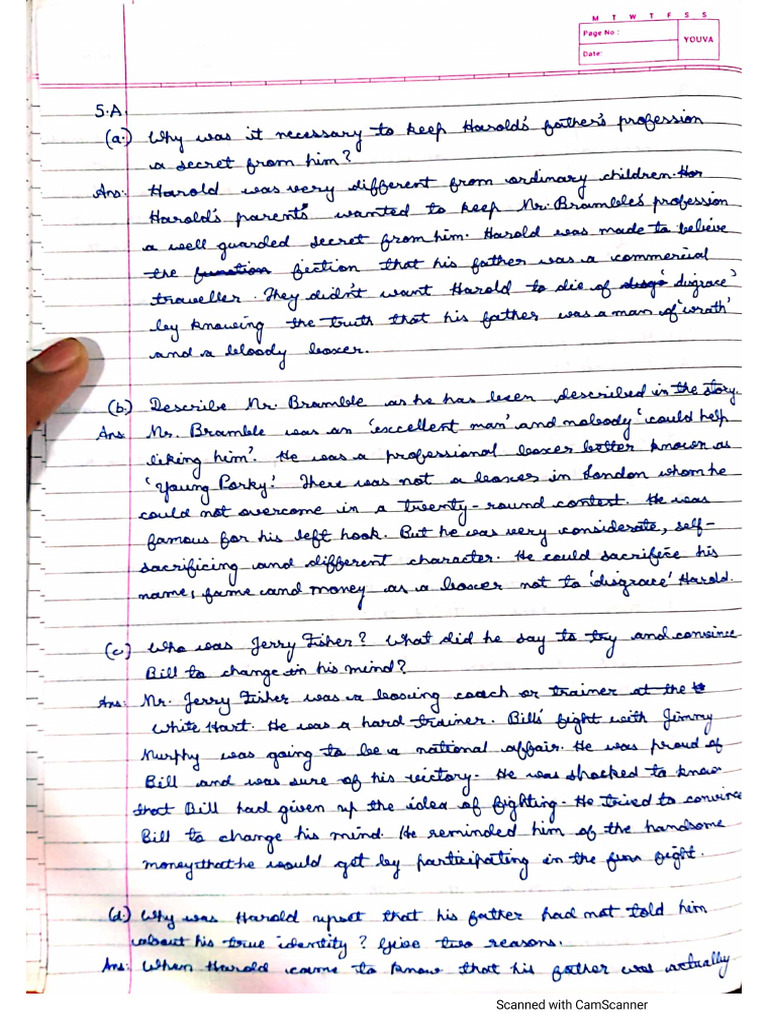 M T W T F S S
Page No :
YOUVA
Date:
5.A.
(a.) Why was it necessary to keep Harold's father's profession
a secret from him?
Ans: Harold was very different from ordinary children.
Harold's parents wanted to keep Mr. Bramble's profession
a well guarded secret from him. Harold was made to believe
the fiction that his father was a commercial
traveller. They didn't want Harold to die of disgrace'
by knowing the truth that his father was a man of 'wrath'
and a bloody boxer.
(b.) Describe Mr. Bramble as he has been described in the story.
Ans: Mr. Bramble was an 'excellent man' and nobody 'could help
liking him'. He was a professional boxer better known as
'Young Porky.' There was not a boxer in London whom he
could not overcome in a twenty-round contest. He was
famous for his left hook. But he was very considerate, self-
sacrificing and different character. He could sacrifice his
name, fame and money as a boxer not to 'disgrace' Harold.
(c.) Who was Jerry Fisher? What did he say to try and convince
Bill to change in his mind?
Ans: Mr. Jerry Fisher was a boxing coach or trainer at the
White Hart. He was a hard trainer. Bill's fight with Jimmy
Murphy was going to be a national affair. He was proud of
Bill and was sure of his victory. He was shocked to know
that Bill had given up the idea of fighting. He tried to convince
Bill to change his mind. He reminded him of the handsome
money that he would get by participating in the fight.
(d.) Why was Harold upset that his father had not told him
about his true identity? Give two reasons.
Ans: When Harold came to know that his father was actually
Scanned with CamScanner